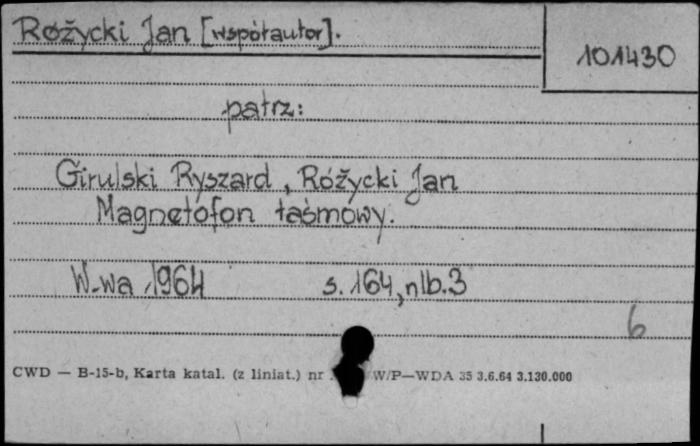 Różycki Jan [współautor].
101430
patrz:
Girulski Ryszard, Różycki Jan
Magnetofon taśmowy.
W-wa, 1964 s. 164, nlb. 3
6
CWD — B-15-b, Karta katal. (z liniat.) nr W/P—WDA 35 3.6.64 3.130.000